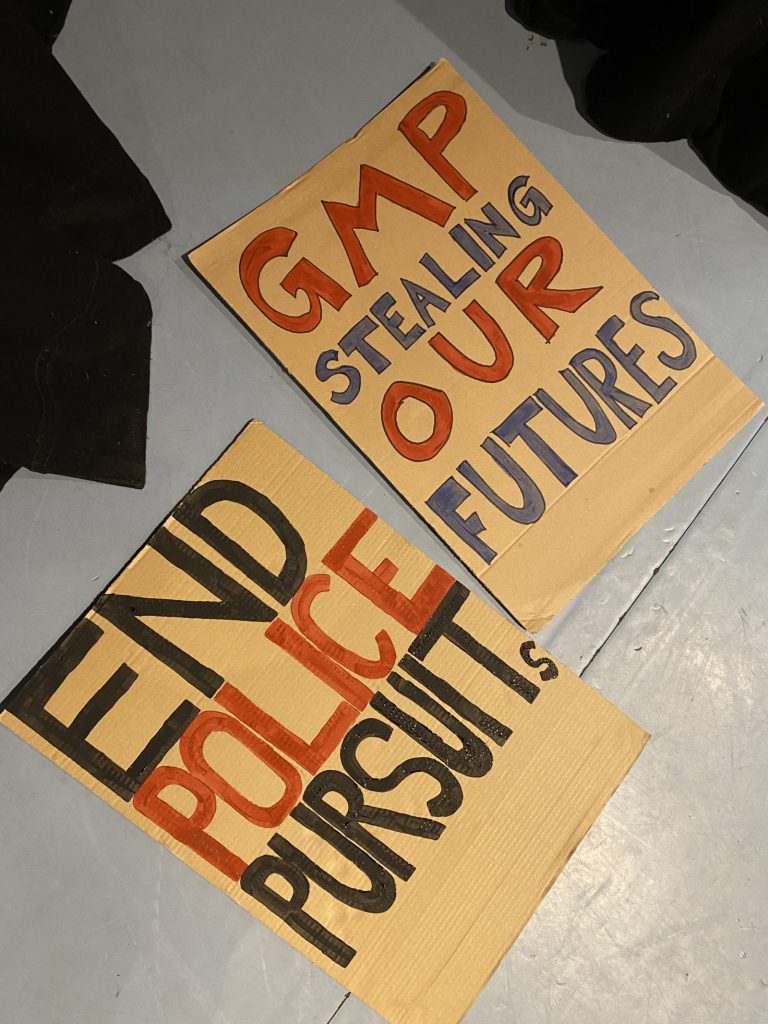 GMP
STEALING
OUR
FUTURES
END
POLICE
PURSUITs